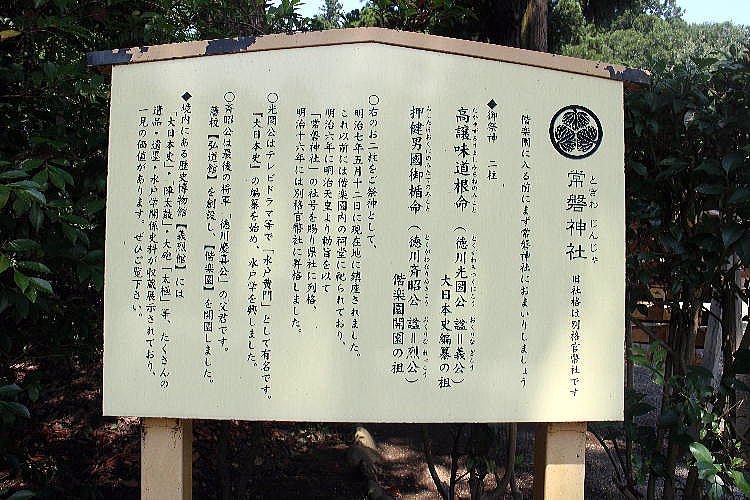 常磐神社
ときわ じんじゃ
旧社格は別格官幣社です
偕楽園に入る前にまず常磐神社におまいりしましょう
◆御祭神 二柱
高譲味道根命
(徳川光圀公 諡=義公)
大日本史編纂の祖
押健男國御楯命
(徳川斉昭公 諡=烈公)
偕楽園開園の祖
○右のお二柱をご祭神として、
明治七年五月十二日に現在地に鎮座されました。
これ以前には偕楽園内の祠堂に祀られており、
明治六年に明治天皇より勅旨を以て
「常磐神社」の社号を賜り県社に列格、
明治十六年には別格官幣社に昇格しました。
○光圀公はテレビドラマ等で「水戸黄門」として有名です。
『大日本史』の編纂を始め、水戸学を興しました。
○斉昭公は最後の将軍 徳川慶喜公の父君です。
藩校【弘道館】を創設し、【偕楽園】を開園しました。
◆境内にある歴史博物館【義烈館】には
『大日本史』・陣太鼓・大砲「太極」等、たくさんの
遺品・遺墨・水戸学関係史料が収蔵展示されており、
一見の価値があります。ぜひご覧下さい。